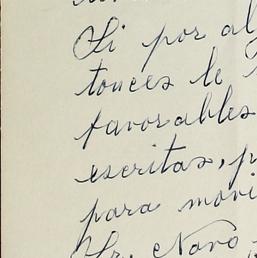 Si por al
tonces le
favorables
escritas, p
para movi
Sr. Novo